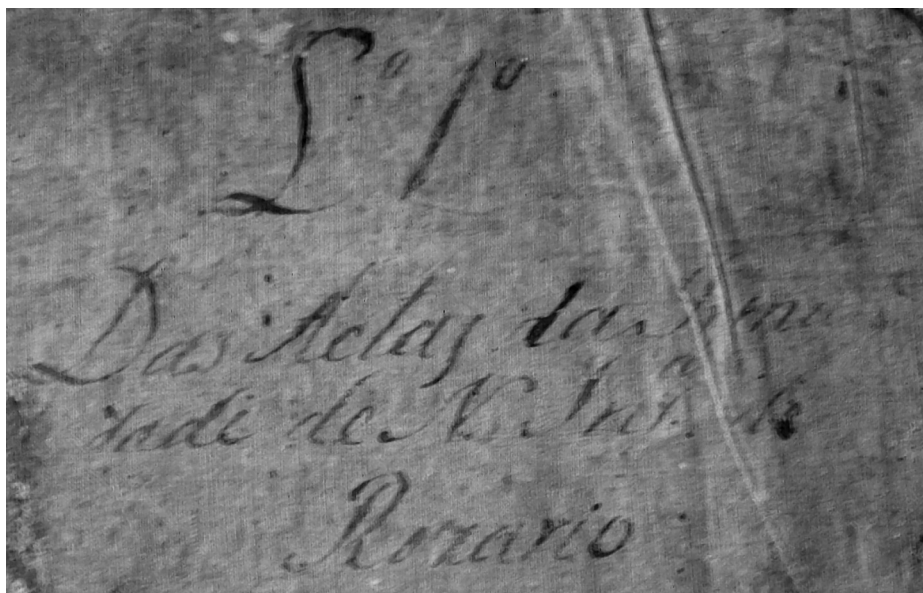 L.º 1º
Das Actas da Irman
dade de N. Snr.ª do
Rozario